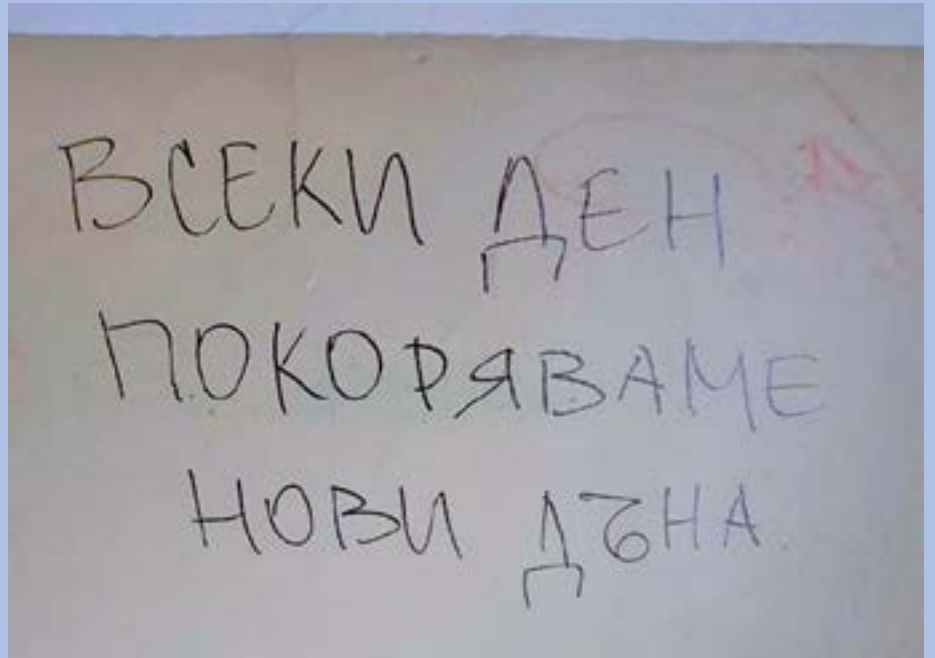 ВСЕКИ ДЕН
ПОКОРЯВАМЕ
НОВИ ДЪНА.